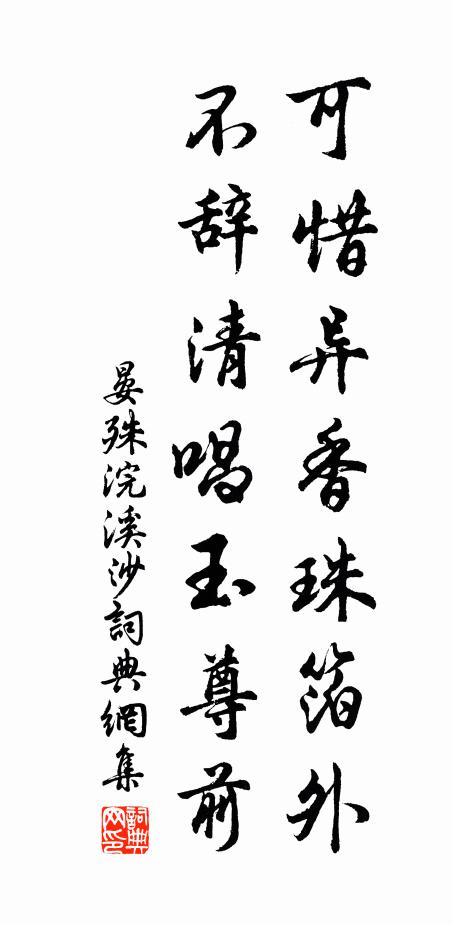 可惜异香珠箔外
不辞清唱玉尊前
晏殊浣溪沙詞典網集
詞典網印